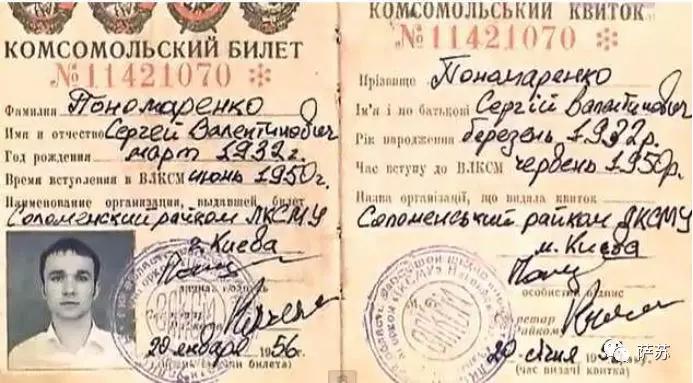 КОМСОМОЛЬСКИЙ БИЛЕТ
№ 11421070 ✻
Фамилия Пономаренко
Имя и отчество Сергей Валентинович
Год рождения март 1932 г.
Время вступления в ВЛКСМ июнь 1950 г.
Наименование организации, выдавшей билет
Соломенский райком ЛКСМУ
г. Киева
20 января 1956 г.
(время выдачи билета)
КОМСОМОЛЬСЬКИЙ КВИТОК
№ 11421070 ✻
Прізвище Пономаренко
Ім'я і по батькові Сергій Валентинович
Рік народження березень 1932 р.
Час вступу до ВЛКСМ червень 1950 р.
Назва організації, що видала квиток
Соломенський райком ЛКСМУ
м. Києва
особистий підпис
20 січня
(час видачі квитка)
萨苏